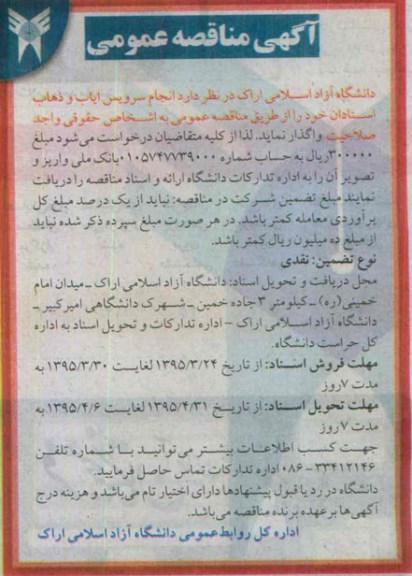 آگهی مناقصه عمومی
دانشگاه آزاد اسلامی اراک در نظر دارد انجام سرویس ایاب و ذهاب
استادان خود را از طریق مناقصه عمومی به اشخاص حقوقی واجد
صلاحیت واگذار نماید. لذا از کلیه متقاضیان درخواست می‌شود مبلغ
۳۰۰۰۰۰ ریال به حساب شماره ۰۱۰۵۷۴۷۷۳۹۰۰۰ بانک ملی واریز و
تصویر آن را به اداره تدارکات دانشگاه ارائه و اسناد مناقصه را دریافت
نمایند مبلغ تضمین شرکت در مناقصه: نباید از یک درصد مبلغ کل
برآوردی معامله کمتر باشد. در هر صورت مبلغ سپرده ذکر شده نباید
از مبلغ ده میلیون ریال کمتر باشد.
نوع تضمین: نقدی
محل دریافت و تحویل اسناد: دانشگاه آزاد اسلامی اراک - میدان امام
خمینی (ره) - کیلومتر ۳ جاده خمین - شهرک دانشگاهی امیرکبیر -
دانشگاه آزاد اسلامی اراک - اداره تدارکات و تحویل اسناد به اداره
کل حراست دانشگاه.
مهلت فروش اسناد: از تاریخ ۱۳۹۵/۳/۲۴ لغایت ۱۳۹۵/۳/۳۰ به
مدت ۷ روز
مهلت تحویل اسناد: از تاریخ ۱۳۹۵/۴/۳۱ لغایت ۱۳۹۵/۴/۶ به
مدت ۷ روز
جهت کسب اطلاعات بیشتر می‌توانید با شماره تلفن
۳۳۴۱۲۱۴۶ - ۰۸۶ اداره تدارکات تماس حاصل فرمایید.
دانشگاه در رد یا قبول پیشنهادها دارای اختیار تام می‌باشد و هزینه درج
آگهی‌ها بر عهده برنده مناقصه می‌باشد.
اداره کل روابط عمومی دانشگاه آزاد اسلامی اراک